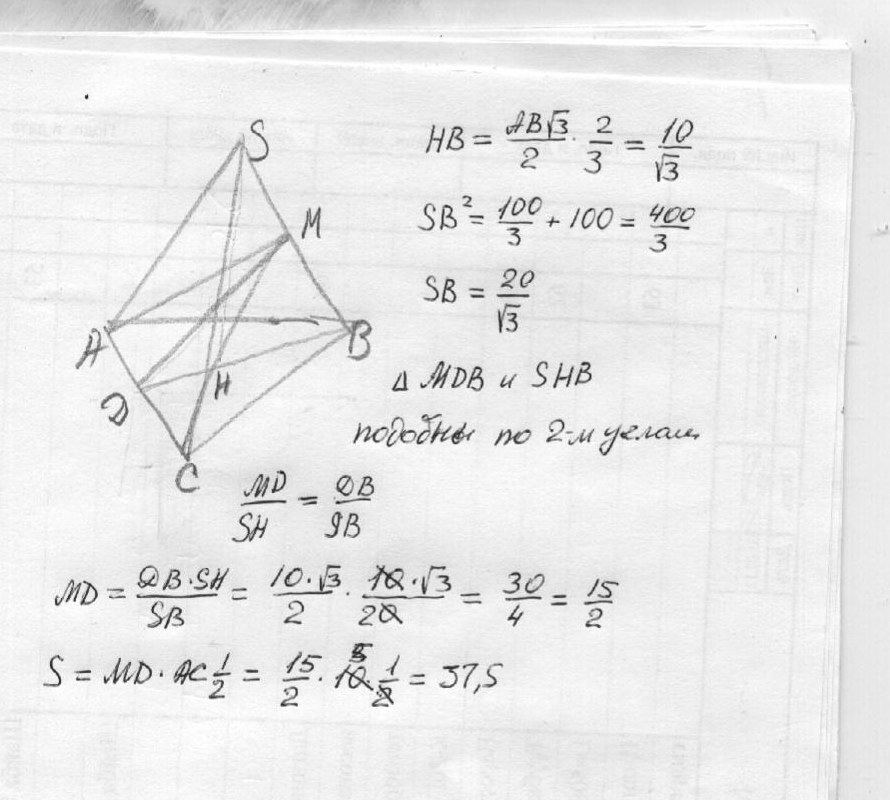 S
M
A
B
D
H
C
HB = AB√3/2 · 2/3 = 10/√3
SB² = 100/3 + 100 = 400/3
SB = 20/√3
Δ MDB и SHB
подобны по 2-м углам
MD/SH = DB/SB
MD = DB·SH/SB = 10·√3/2 · 10·√3/20 = 30/4 = 15/2
S = MD · AC 1/2 = 15/2 · 10 5 1/2 = 37,5